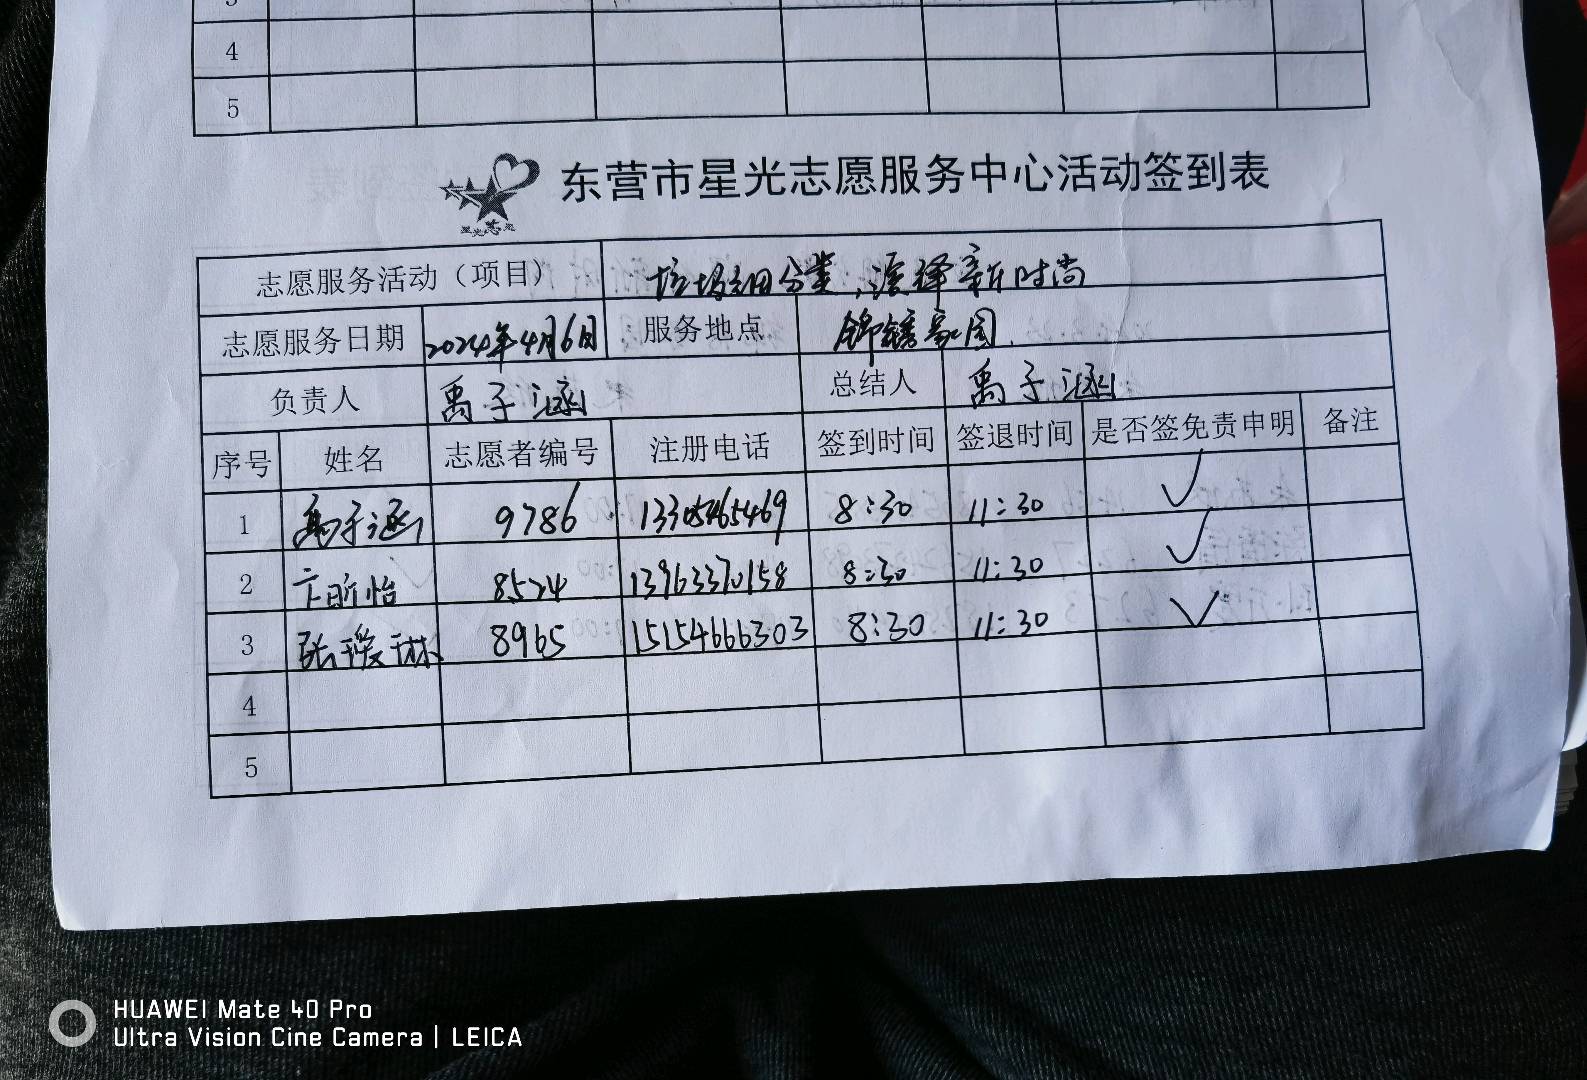 4
5
星光志愿
东营市星光志愿服务中心活动签到表
志愿服务活动（项目） 垃圾细分类,演绎新时尚
志愿服务日期 2024年4月6日 服务地点 锦绣家园.
负责人 禹子涵 总结人 禹子涵
序号 姓名 志愿者编号 注册电话 签到时间 签退时间 是否签免责申明 备注
1 禹子涵 9786 13305465469 8:30 11:30 ✓
2 卞昕怡 8524 13963370158 8:30 11:30 ✓
3 张璇琳 8965 15154666303 8:30 11:30 ✓
4
5
HUAWEI Mate 40 Pro
Ultra Vision Cine Camera | LEICA